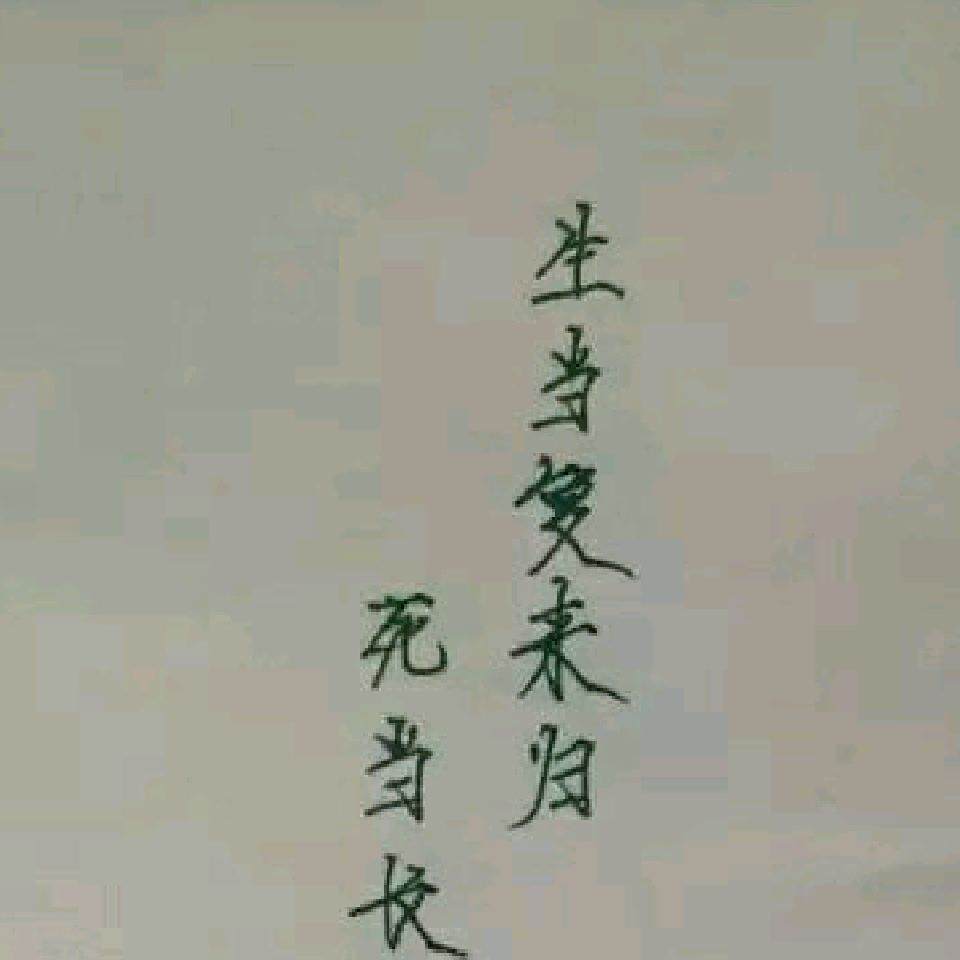 生当复来归
死当长